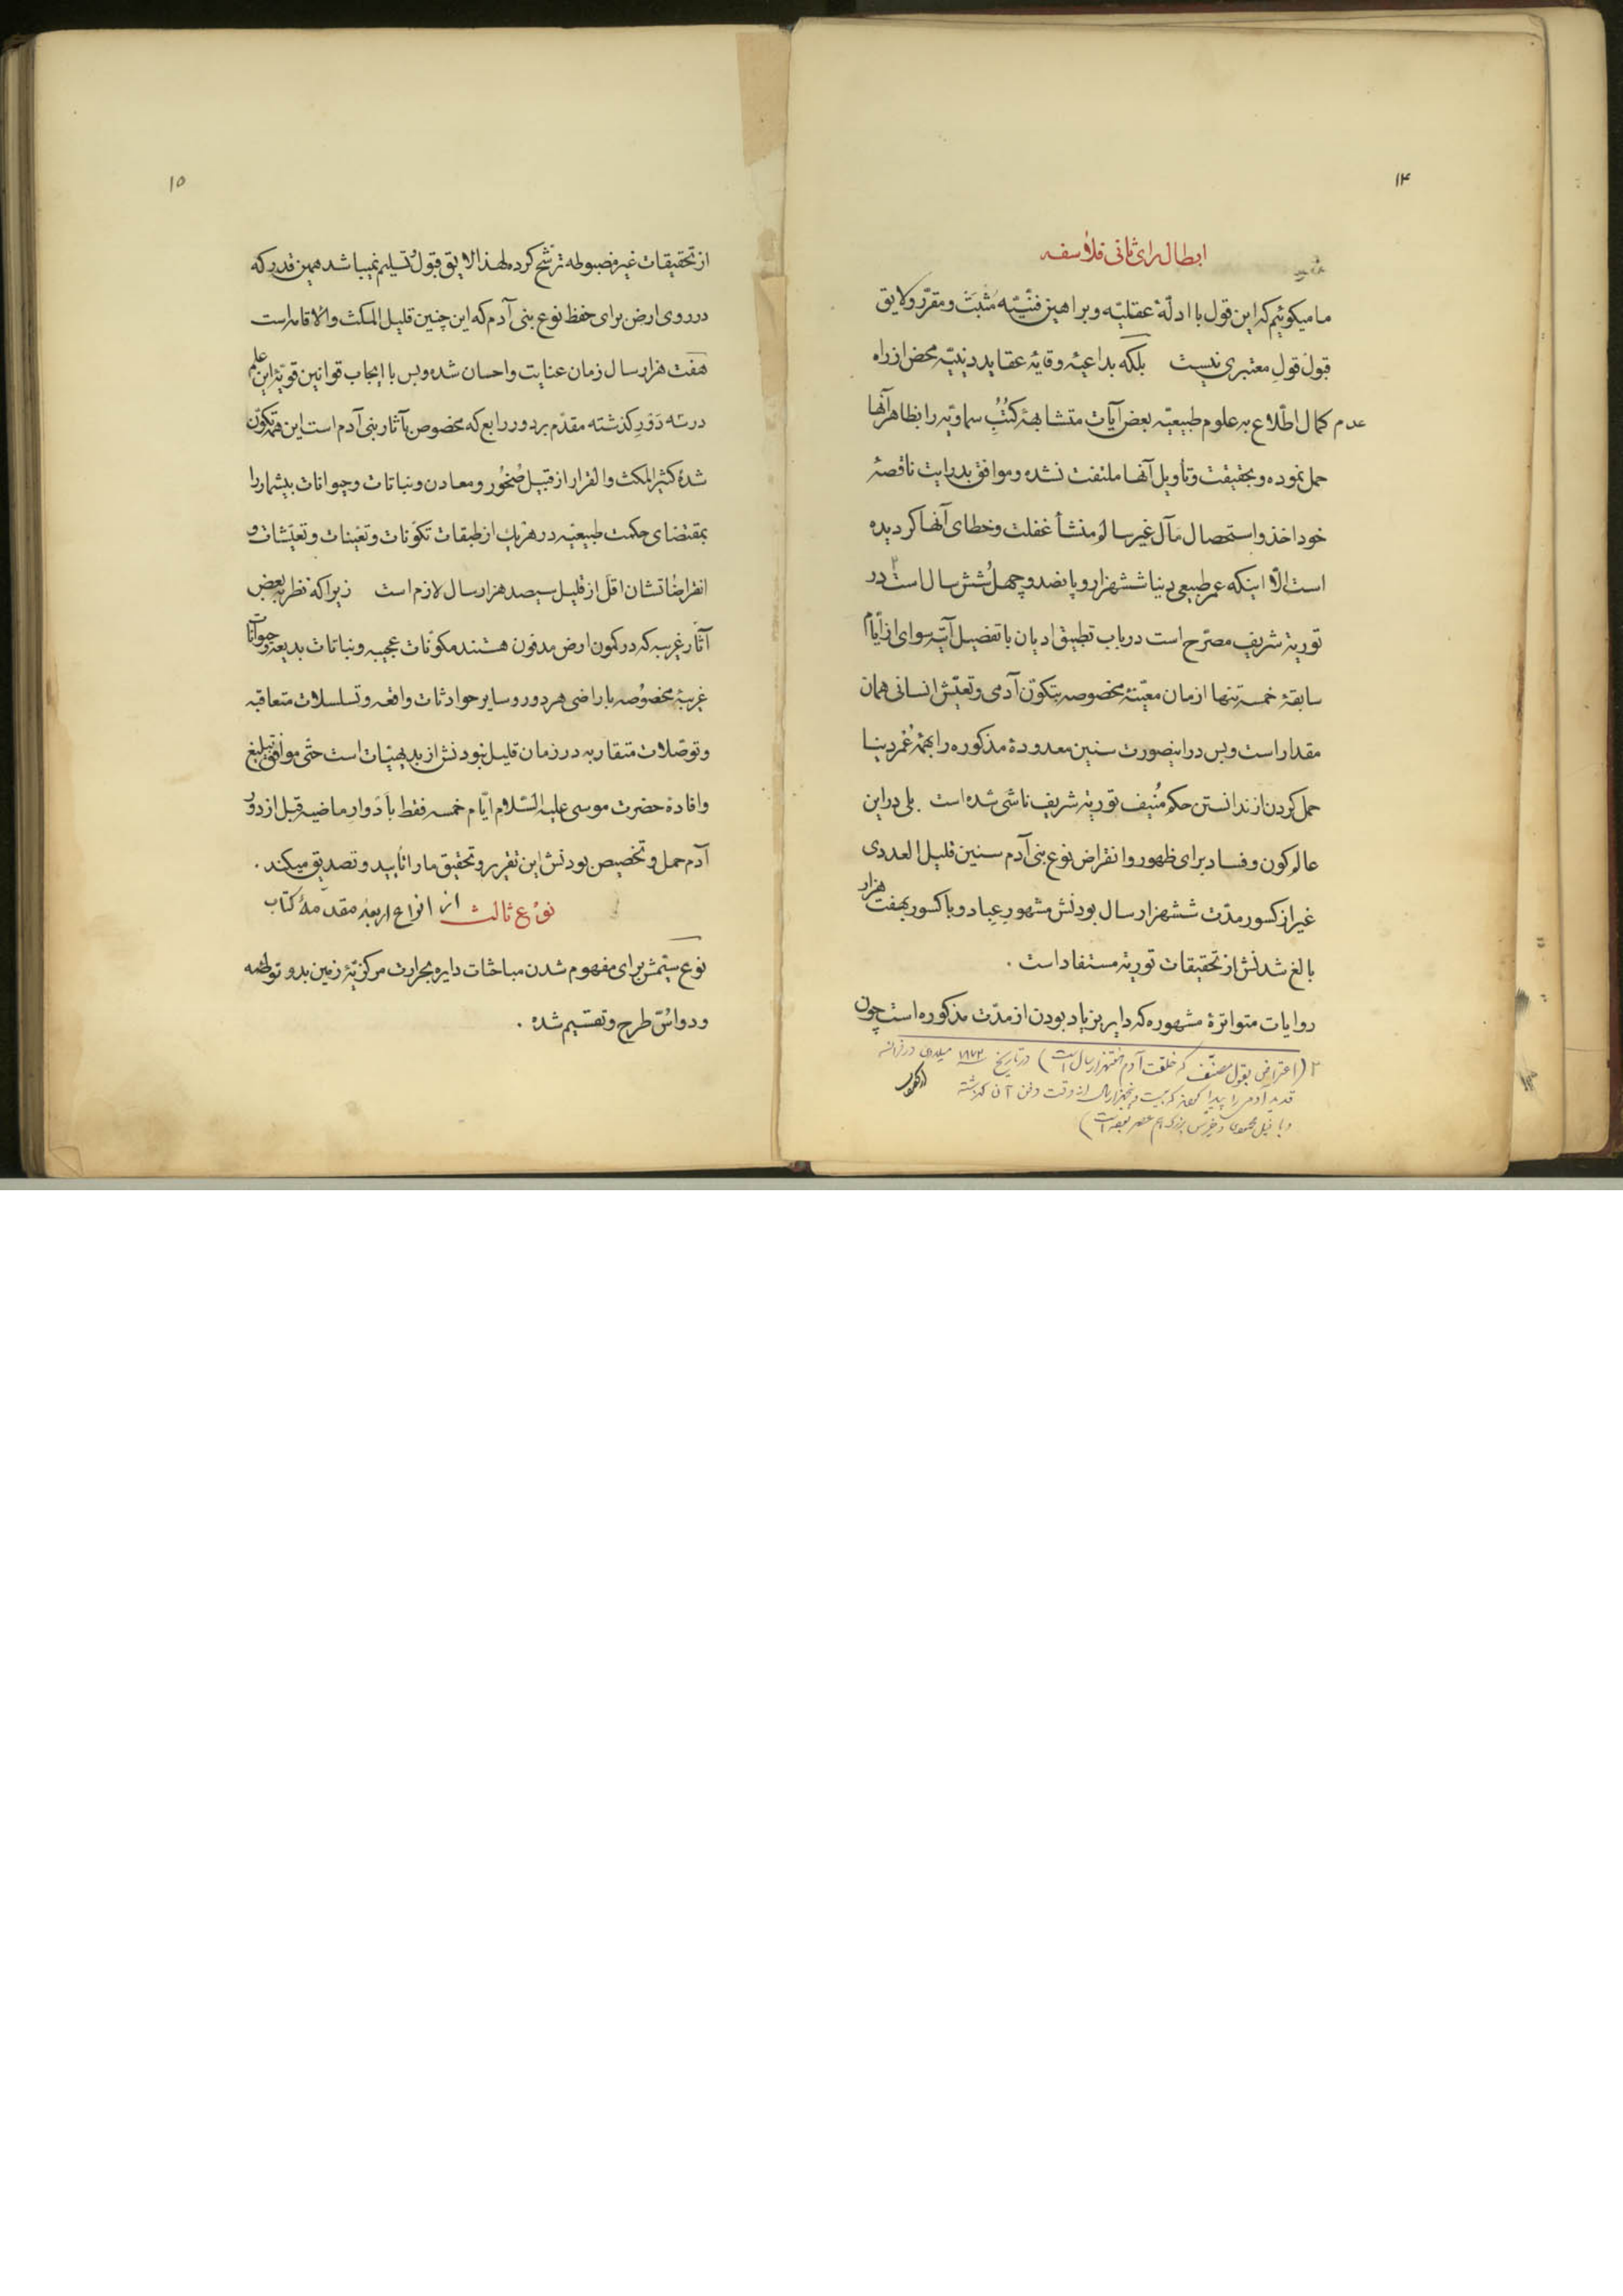 ۱۴
ابطال رای ثانی فلاسفه
ما میکوئیم که این قول با ادلّهٔ عقلیّه و براهین فنّیّه مُثبَت و مقرّر و لایق
قبول قولِ معتبری نیست بلکه بداعیهٔ وقایهٔ عقاید دینیّه محض از راه
عدم کمال اطّلاع به علوم طبیعیّه بعض آیات متشابههٔ کُتُبِ سماویّه را بظاهر آنها
حمل نموده و بحقیقت و تأویل آنها ملتفت نشده و موافق بدرایت ناقصهٔ
خود اخذ و استحصال مآل غیر سالم منشأ غفلت و خطای آنها کردیده
است الّا اینکه عمر طبیعی دنیا ششهزار و پانصد و چهل شش سال است در
توریة شریف مصرّح است در باب تطبیق ادیان با تفصیل آتیه سوای از ایّام
سابقهٔ خمسه تنها ازمان معیّنهٔ مخصوصه بتکوّن آدمی و تعیّش انسانی همان
مقدار است و بس در اینصورت سنین معدودهٔ مذکوره را بهمهٔ عُمر دنیا
حمل کردن از ندانستن حکم مُنیف توریة شریف ناشی شده است . بلی در این
عالم کون و فساد برای ظهور و انقراض نوع بنی آدم سنین قلیل العددی
غیر از کسور مدّت ششهزار سال بودنش مشهورِ عِباد و با کسور بهفت هزار
بالغ شدنش از تحقیقات توریة مستفاد است .
روایات متواترهٔ مشهوره که دایر بزیاد بودن از مدّت مذکوره است چون
۲ (اعتراض بقول مصنّف که خلقت آدم هفتهزار سال است) در تاریخ ۱۸۷۲ میلادی در فرانسه
قدید آدمی را پیدا کرده‌اند که بیست و پنجهزار سال از وقت دفن آن گذشته
و با فیل محمودی و خرس بزرگ هم عصر بوده است)
۱۵
از تحقیقات غیر مضبوطه ترشّح کرده لهذا لایق قبول و تسلیم نمیباشد همین قدر که
در روی ارض برای حفظ نوع بنی آدم که این چنین قلیل المکث والاقامه است
هفت هزار سال زمان عنایت و احسان شده و بس با ایجاب قوانین قویّهٔ این علم
در سه دَوَرِ کذشته مقدّم بر دور رابع که مخصوص بآثار بنی آدم است این همه تکوّن
شدهٔ کثیر المکث والقرار از قبیل صُخُور و معادن و نباتات و حیوانات بیشمار را
بمقتضای حکمت طبیعیّه در هر یک از طبقات تکوّنات و تعیّنات و تعیّشات و
انقراضاتشان اقل از قلیل سیصد هزار سال لازم است زیرا که نظر به بعض
آثار غریبه که در کمون ارض مدفون هستند مکوّنات عجیبه و نباتات بدیعه و حیوانات
غریبهٔ مخصوصه باراضی هر دور و سایر حوادثات واقعه و تسلسلات متعاقبه
و توصّلات متقاربه در زمان قلیل نبودنش از بدیهیّات است حتّی موافق تبلیغ
و افادهٔ حضرت موسی علیه السّلام ایّام خمسه فقط بأدوار ماضیه قبل از دور
آدم حمل و تخصیص بودنش این تقریر و تحقیق ما را تأیید و تصدیق میکند .
نوع ثالث از انواع اربعهٔ مقدّمهٔ کتاب
نوع سیّمش برای مفهوم شدن مباحثات دایره بحرارت مرکزیّهٔ زمین بدو توطئه
و دو اُسّ طرح و تقسیم شده .